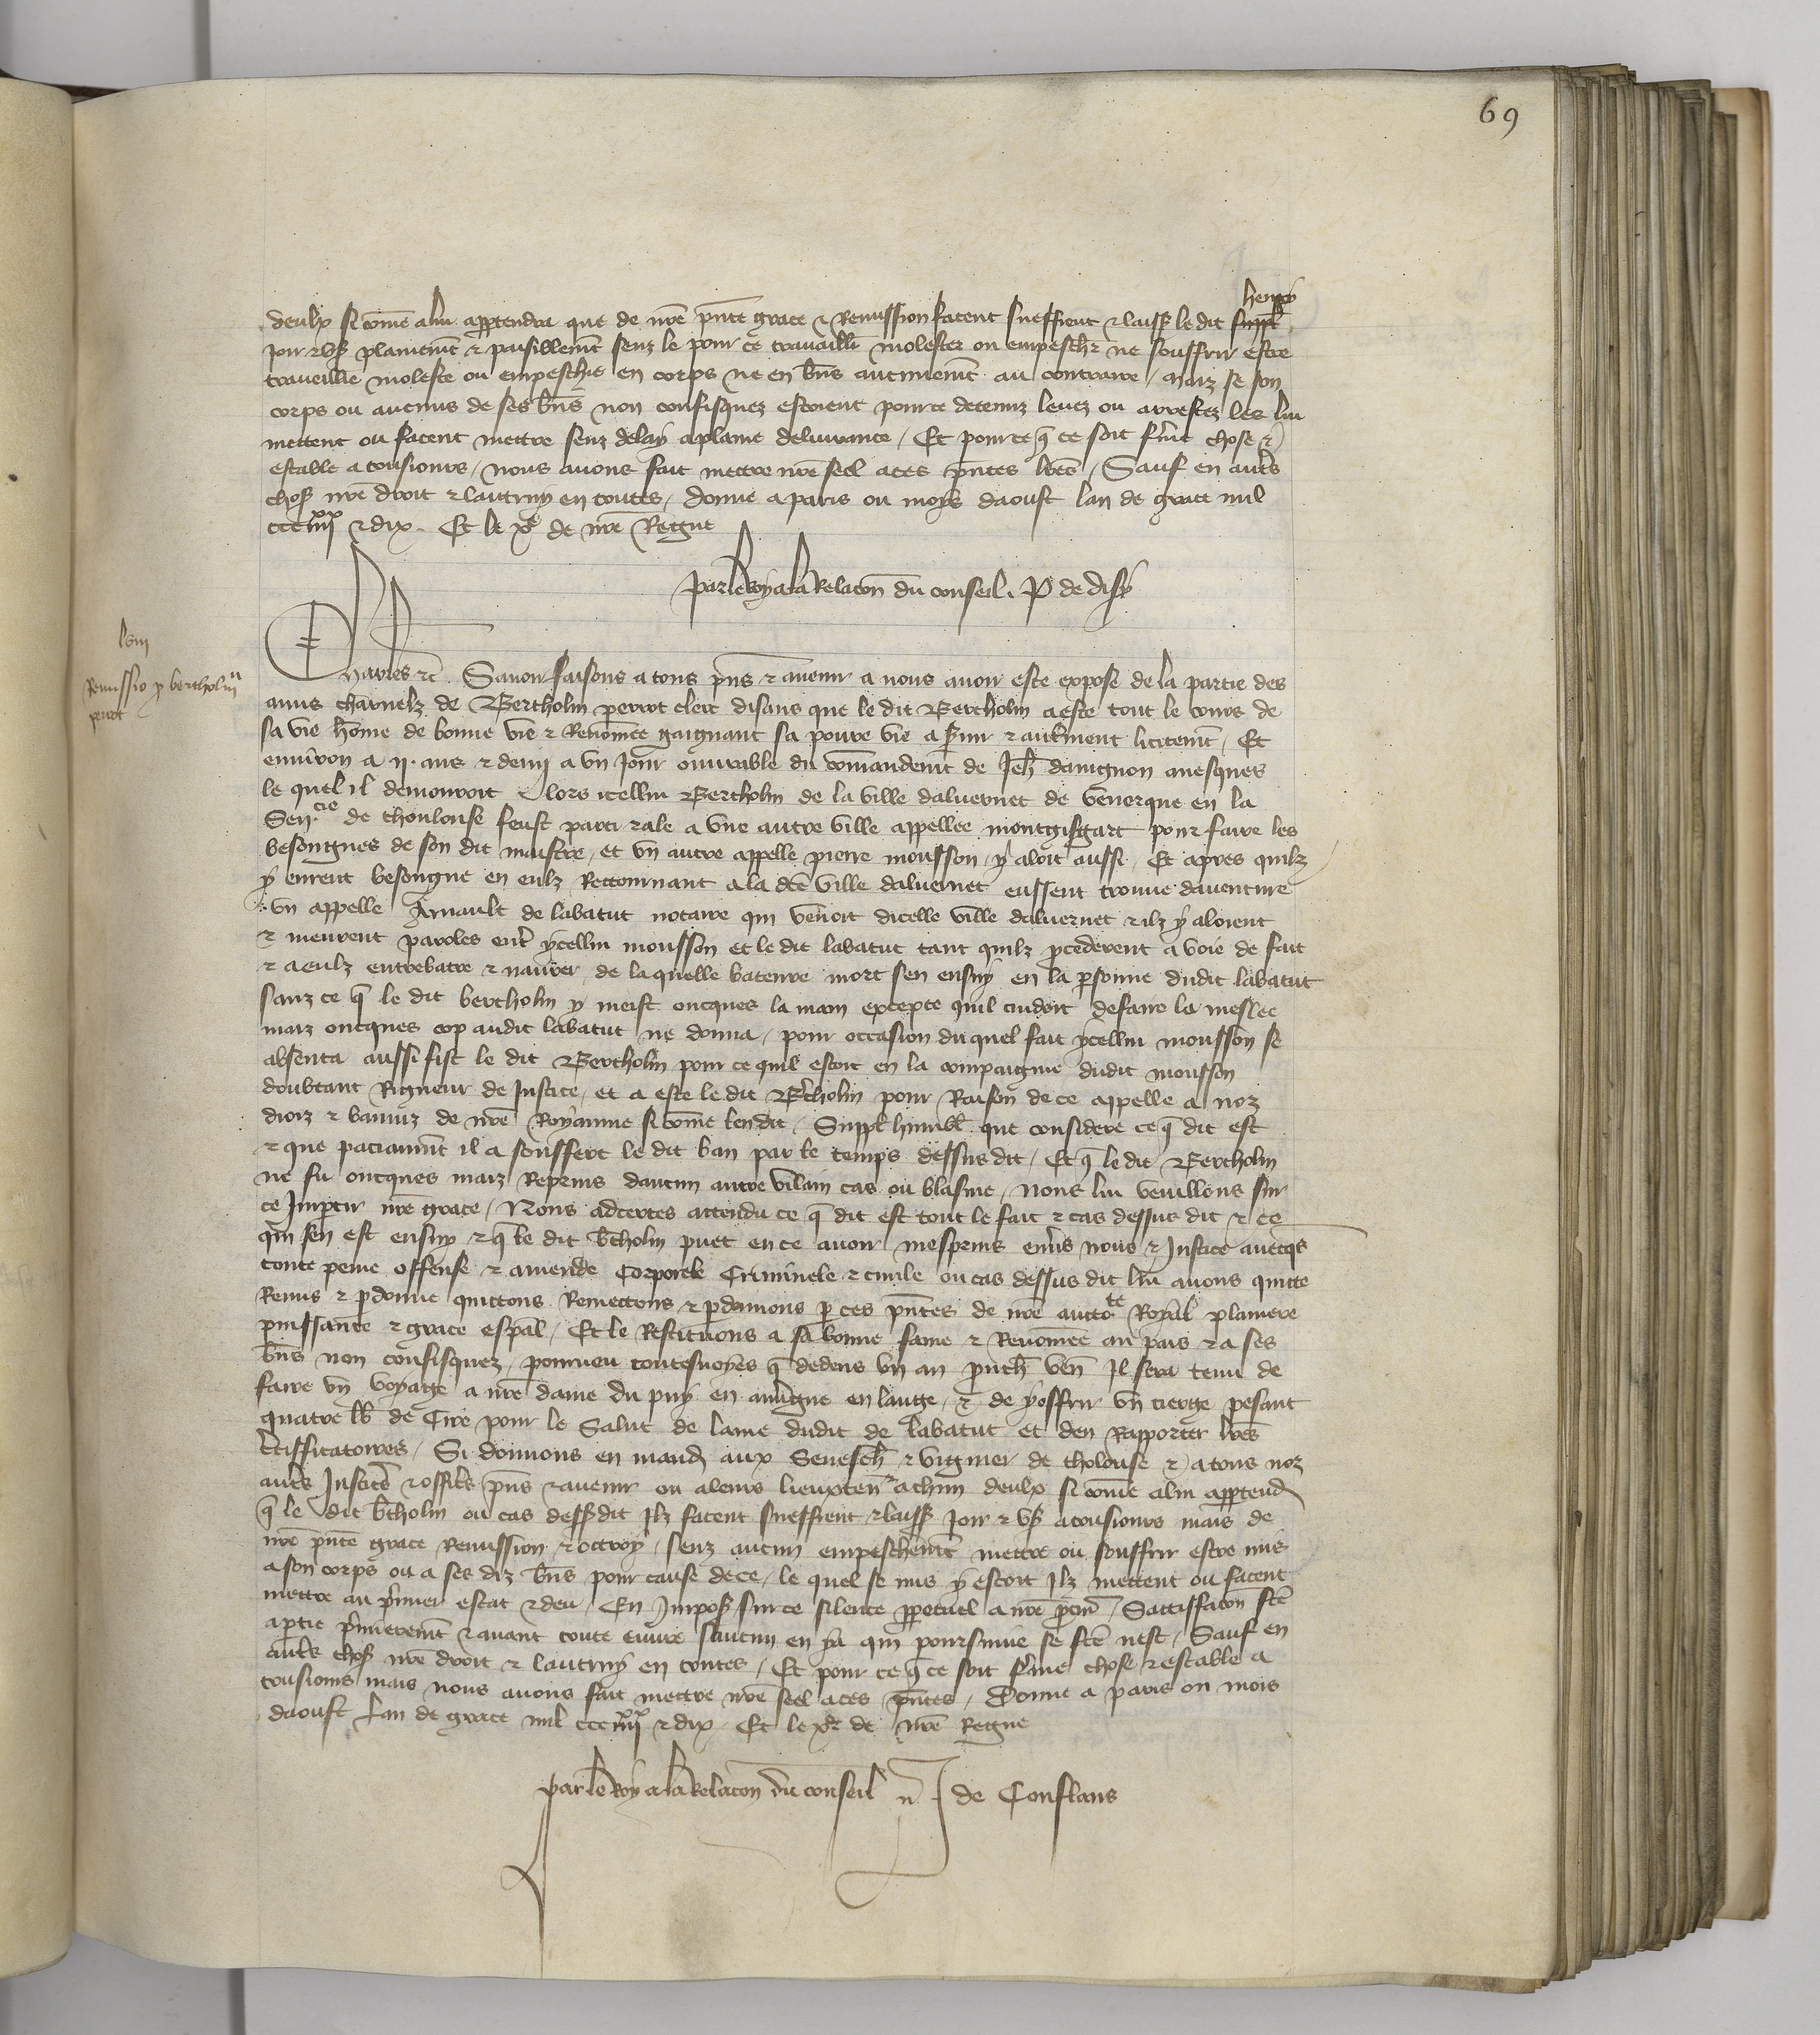 69
henry
deulx si come a lui app̃tendra que de nr̃e p̃nte grace & Remission facent sueffrent & laiss̃ le dit supp̃l
joir & us̃ plainem̃t & paisiblem̃t senz le pour ce travaill̃r molester ou empesch̃r ne souffrir estre
traveillie moleste ou empeschie en corps ne en bñs aucunem̃t au contraire / maiz se son
corps ou aucuns de ses bñs non confisquez estoient pour ce detenuz levez ou arrestez les lui
mettent ou facent mettre senz delay a plaine delivrance / Et pour ce q̃ ce soit ferme chose &
estable a tousiours / nous avons fait mettre nr̃e seel a ces p̃ntes lr̃es / Sauf en autr̃s
chos̃ nr̃e droit & lautruy en toutes / donne a paris ou moys daoust lan de grace mil
ccc iiii xx & dix. Et le xe de nr̃e Regne
par le Roy a la Relacõn du conseil. P de disy
lxvi
Remissio p bertholin
perrot
Charles &c̃. Savoir faisons a tous p̃ns & avenir a nous avoir este expose de la partie des
amis charnelz de Bertholin perrot cleric disans que le dit Bertholin a este tout le cours de
sa vie hom̃e de bonne vie & Renom̃ee gaignant sa povre vie a s̃vir & autrement licitem̃t / Et
environ a ii. ans & demi a un jour ouvrable du com̃andem̃t de Jeh̃ davignon avesques
le quel il demouroit lors icellui Bertholin de la ville daluernet de venerque en la
Sen.cie de tholouse feust parti & ale a une autre ville appellee montgisgart pour faire les
besongnes de son dit maistre / et un autre appelle pierre mousson / y aloit aussi / Et apres quilz
y eurent besongne en eulz Retournant a la dc̃e ville daluernet eussent trouve daventure
un appelle Arnault de labatut notaire qui venoit dicelle ville daluernet & ilz y aloient
& meurent paroles entr̃ ycellui mousson et le dit labatut tant quilz p̃cederent a voie de fait
& a eulz entrebatre & navrer / de la quelle bateure mort sen ensuy en la p̃sonne dudit labatut
sanz ce q̃ le dit bertholin y meist oncques la main excepte quil cuidoit defaire la meslee
maiz oncques cop audit labatut ne donna / pour occasion du quel fait ycellui mousson se
absenta aussi fist le dit Bertholin pour ce quil estoit en la compaignie dudit mousson
doubtant Rigueur de Justice / et a este le dit Br̃tholin pour Raison de ce appelle a noz
droiz & banniz de nr̃e Royaume si com̃e len dit / Suppl̃ humbl̃ que considere ce q̃ dit est
& que paciaum̃t il a souffert le dit ban par le temps dessus dit / Et q̃ le dit Bertholin
ne fu oncques maiz Reprins daucun autre vilain cas ou blasme / Nous lui veuillons sur
ce imp̃tir nr̃e grace / Nous adcertes attendu ce q̃ dit est tout le fait & cas dessus dit & ce
qui sen est ensuy & q̃ le dit b̃tholin puet en ce avoir mesprins enṽs nous & Justice avecq̃s
toute peine offense & amende Corporele Criminele & civile ou cas dessus dit lui avons quitte
Remis & p̃donne quittons Remettons & p̃donnons p̃ ces p̃ntes de nr̃e auct.te Royãl plainiere
puissance & grace esp̃al / Et le Restituons a sa bonne fame & Renom̃ee au pais & a ses
bñs non confisquez / pourveu toutesvoyes q̃ dedens un an p̃uch̃ ven̄ Il sera tenu de
faire un voyage a nr̃e dame du puy en auv̄gne en lange / & de y offrir un cierge pesant
quatre lb̃ de Cire pour le Salut de lame dudit de labatut et den Rapporter lr̃es
c̃tifficatoires / Si donnons en mand̃ aux Senesch̃ & viguier de tholouse & a tous noz
autr̃s Justic̃ & offic̃s p̃ns & avenir ou a leurs lieuxten̄ & a chun deulx si com̃e a lui app̃tend̃
q̃ le dit b̃tholin ou cas dess̃dit Ilz facent sueffrent & laiss̃ joir & us̃ a tousiours mais de
nr̃e p̃nte grace Remission & ottroy / senz aucun empeschem̃t mettre ou souffrir estre mis
a son corps ou a ses diz bñs pour cause de ce / le quel se mis y estoit Ilz mettent ou facent
mettre au p̃mier estat & deu / En Impos̃ sur ce silence p̃petuel a nr̃e p̃cur̃ / Sattiffacõn fc̃e
a p̃tie p̃mierem̃t & avant toute euvre saucun en ya qui poursuive se fc̃e nest / Sauf en
autr̃s chos̃ nr̃e droit & lautruy en toutes / Et pour ce q̃ ce soit ferme chose & estable a
tousiours mais nous avons fait mettre nr̃e seel a ces p̃ntes / Donne a paris ou mois
daoust Lan de grace mil ccc iiii xx & dix / Et le xe de nr̃e Regne
par le Roy a la Relacõn du conseil n J de Conflans